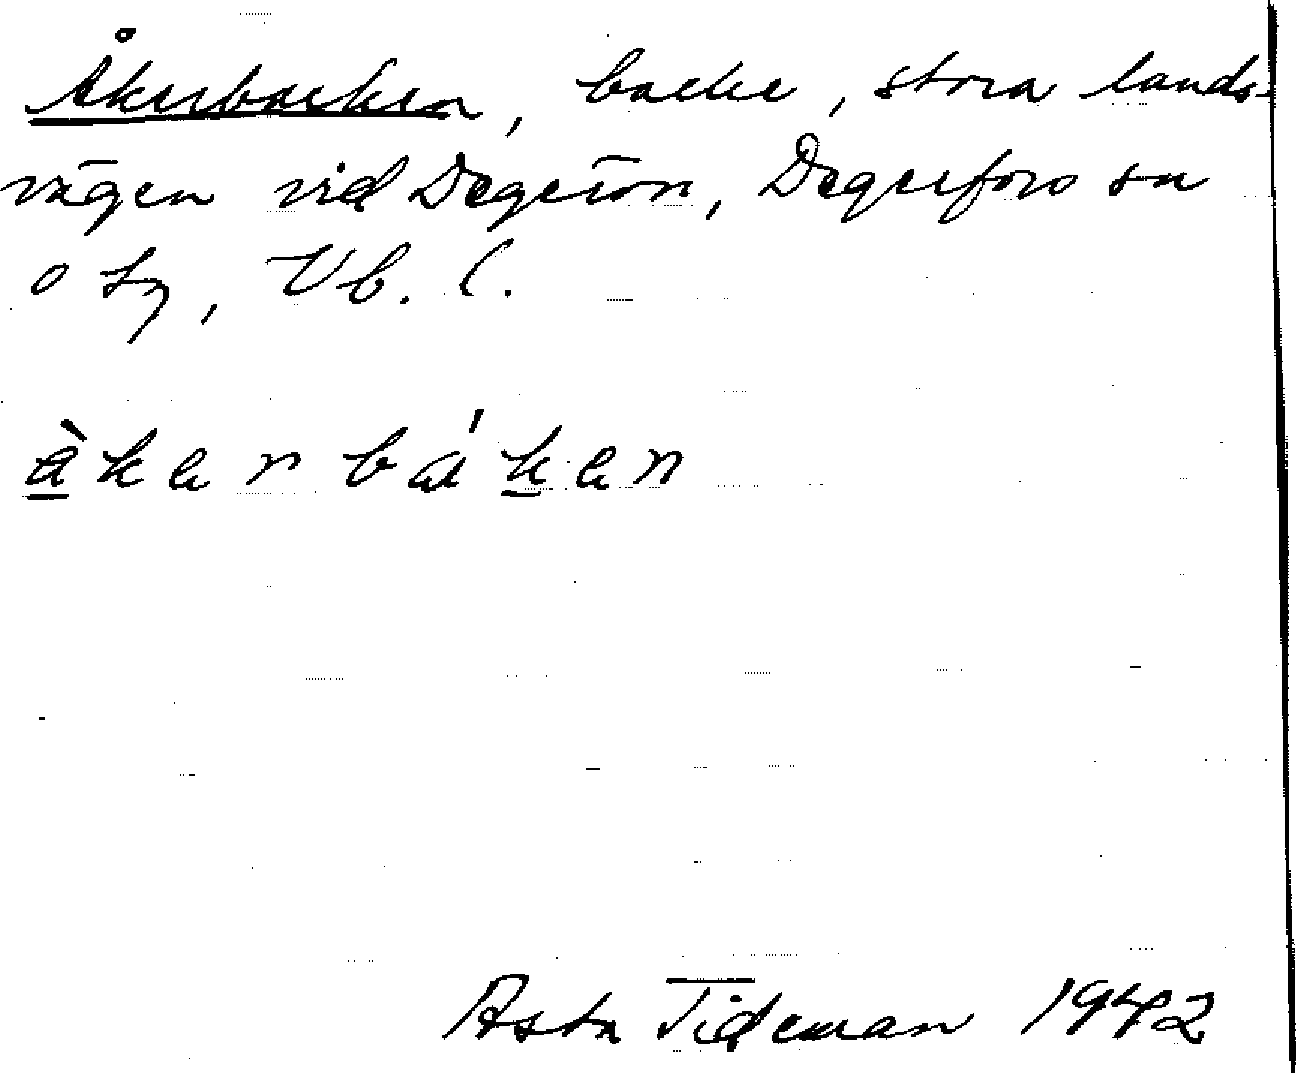 Åkerbacken, backe, stora lands-
vägen vid Degerön, Degerfors sn
o hg, Vb. l.
åkerbáken
Asta Tideman 1942